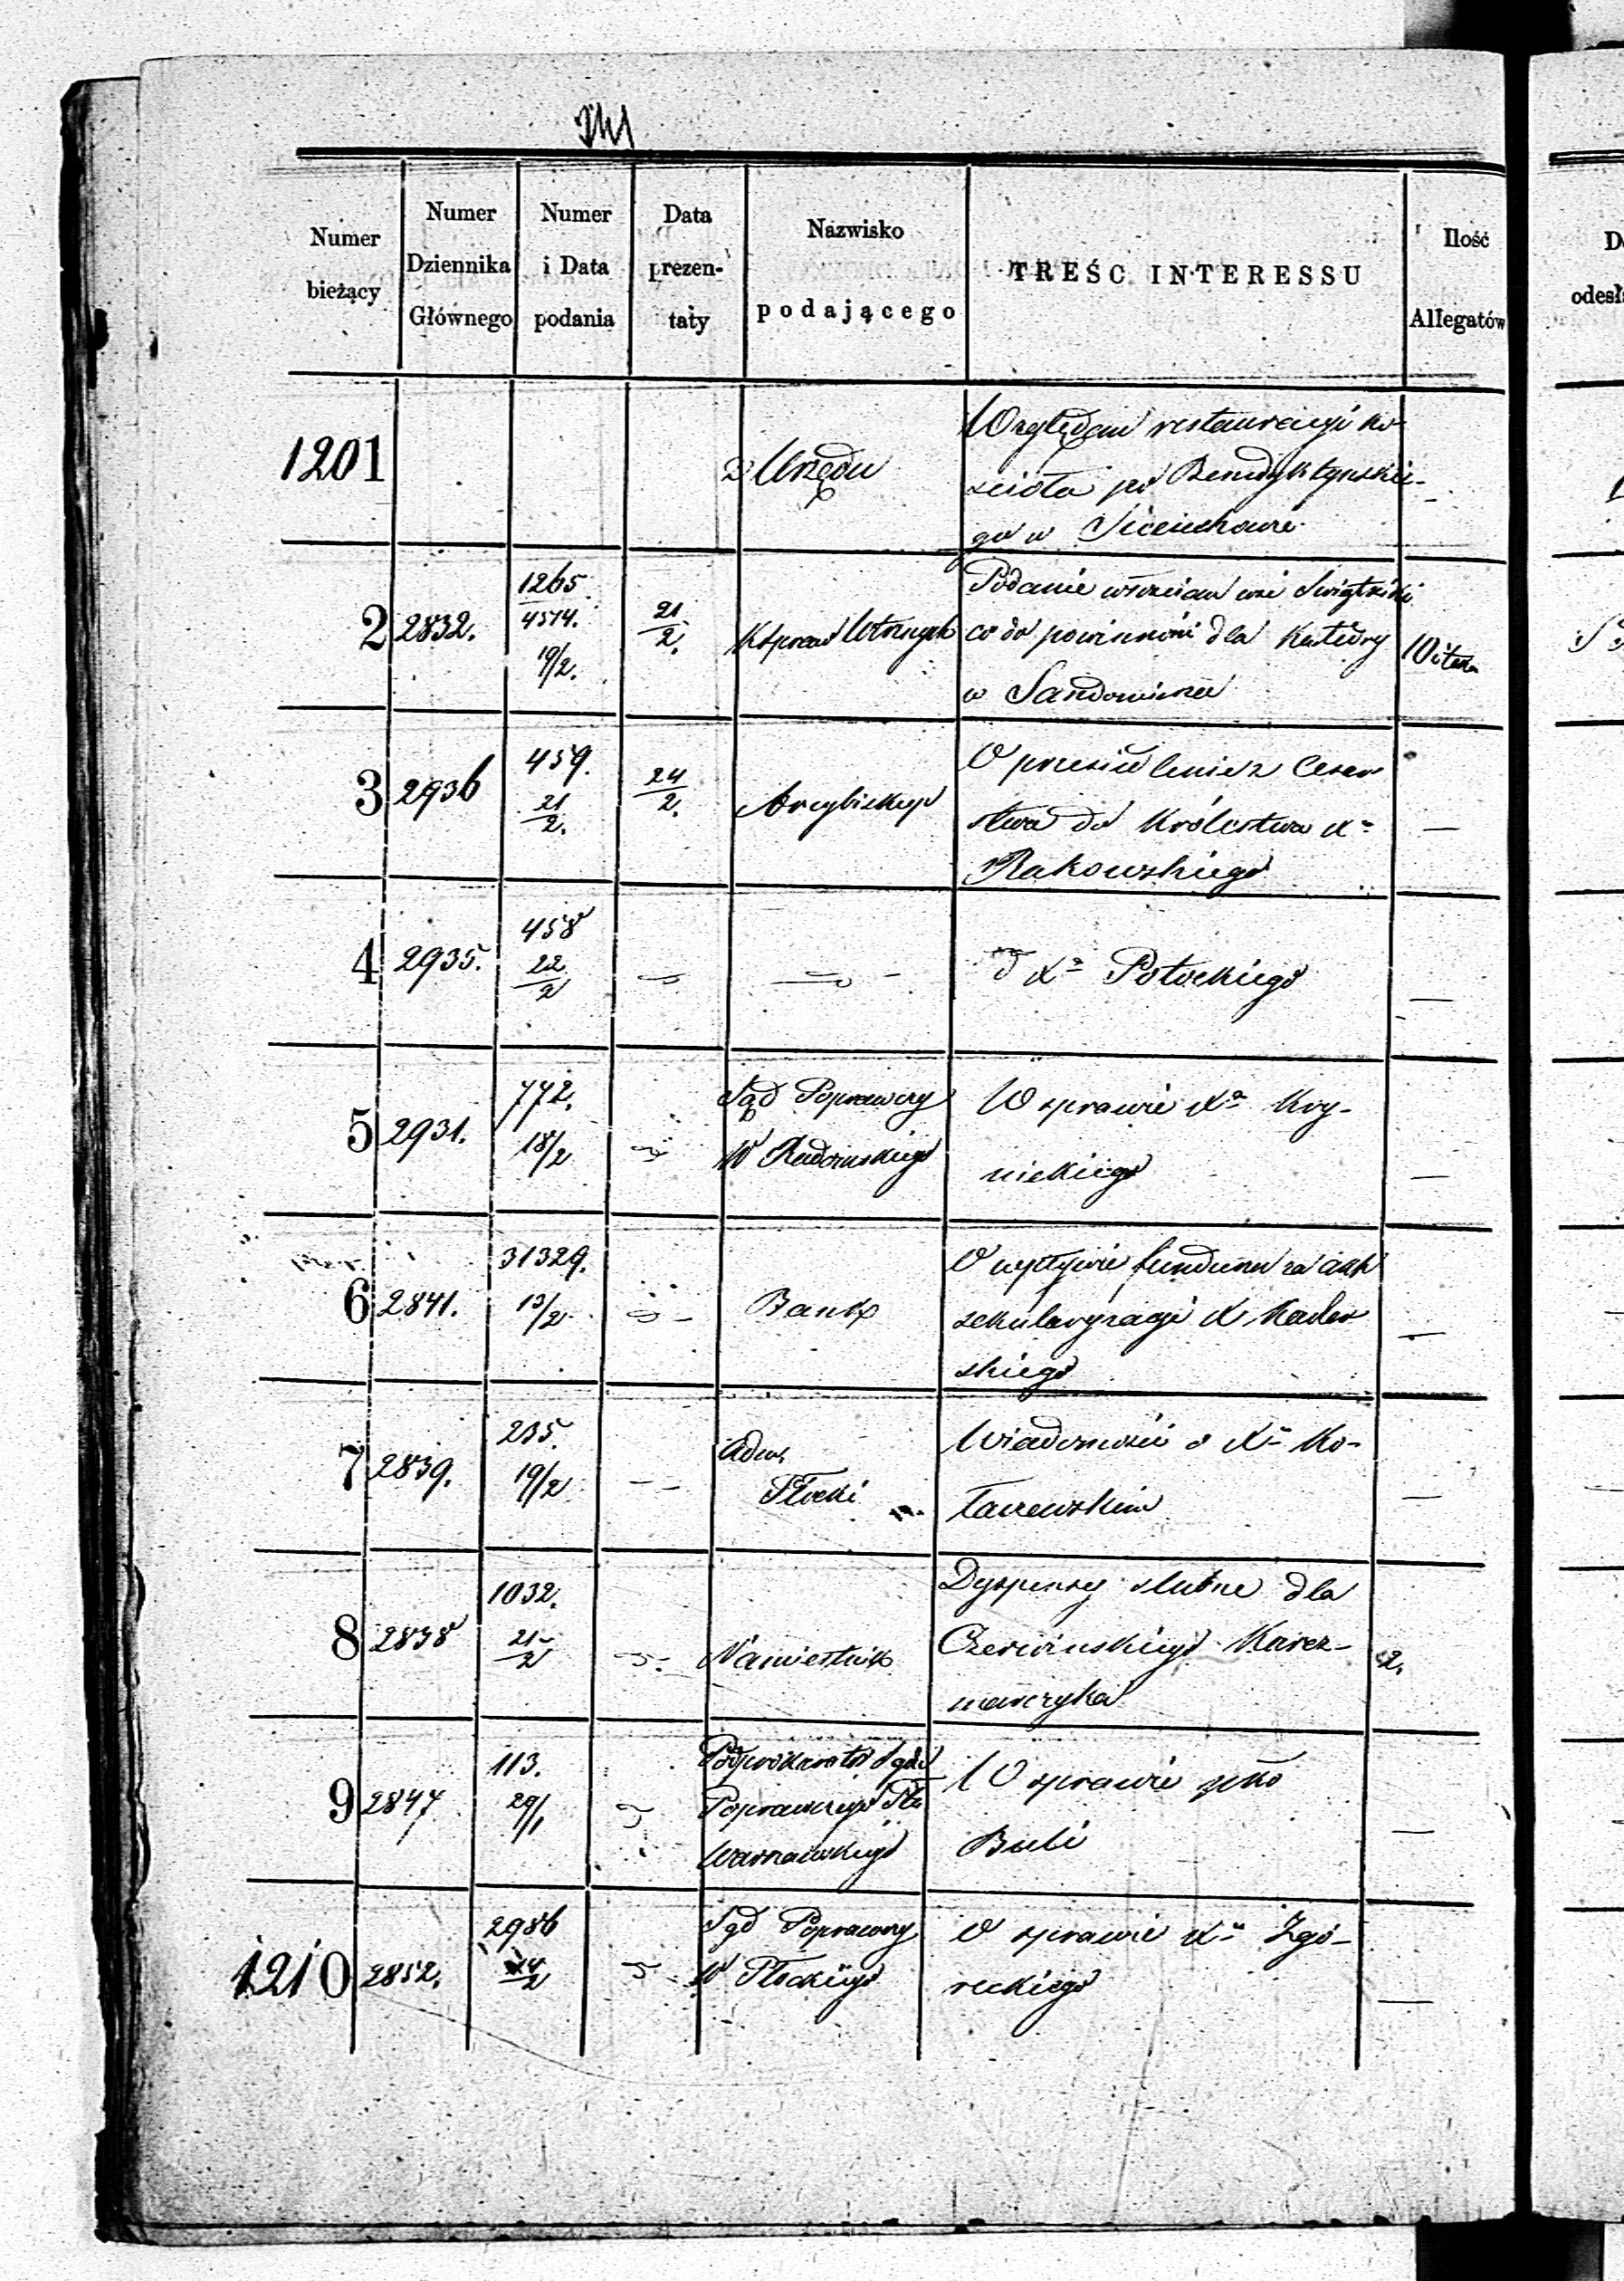 Numer bieżący
Numer Dziennika Głównego
Numer i Data podania
Data prezen- taty
Nazwisko podającego
TREŚC INTERESSU
Ilość Allegatów
1201
z Urzędu
Względem restauracyi ko-
ścioła po Benedyktyńskie-
go w Sieciechowie
2 2832.
1265.
4574.
19/2.
21/2.
Podanie włościan wsi Świątniki
co do powinności dla Katedry
w Sandomierzu
3 2936
459.
21/2.
24/2.
Arcybiskup
O przesiedlenie z Cesar
stwa do Królestwa Xa
Rakowskiego
—
4 2935.
458
22/2
d Xa Potockiego
—
5 2931.
772.
18/2
Sąd Poprawczy
W Radomskiego
W sprawie Xa Kry-
nickiego
—
6 2841.
31329.
13/2
Bank
O wpływie funduszu za akt
sekularyzacyi X
skiego
—
7 2839.
235.
19/2
Adm.
Płocki
Wiadomość o Xu Ko-
łaczewskim
—
8 2838
1032.
21/2
Namiestnik
Dyspensy ślubne dla
Czerwińskiego Karcz-
marczyka
2.
9 2847
113.
29/1
Podprokurator Sądu
Poprawczego
Warszawskiego
W sprawie
—
1210 2852.
2986
14/2
Sąd Poprawczy
W Płockiego
W sprawie Xa Zgó-
reckiego
—
D
odesł